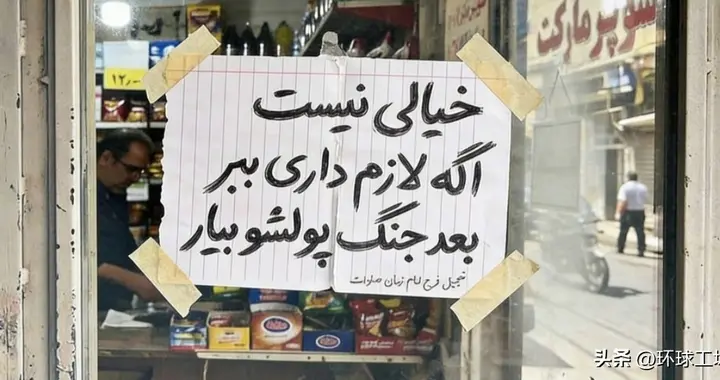 خیالی نیست
اگه لازم داری ببر
بعد جنگ پولشو بیار
تعجیل فرج امام زمان صلوات
سوپر مارکت
۱۲,۰۰
头条 @环球工